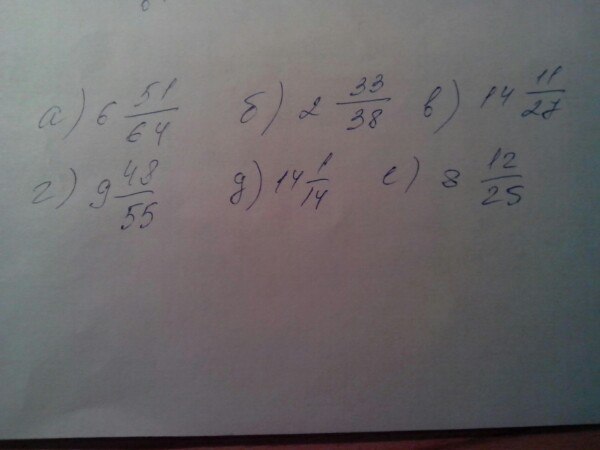 а) 6 51/64 б) 2 33/38 в) 14 11/27
г) 9 48/55 д) 14 1/14 е) 8 12/25